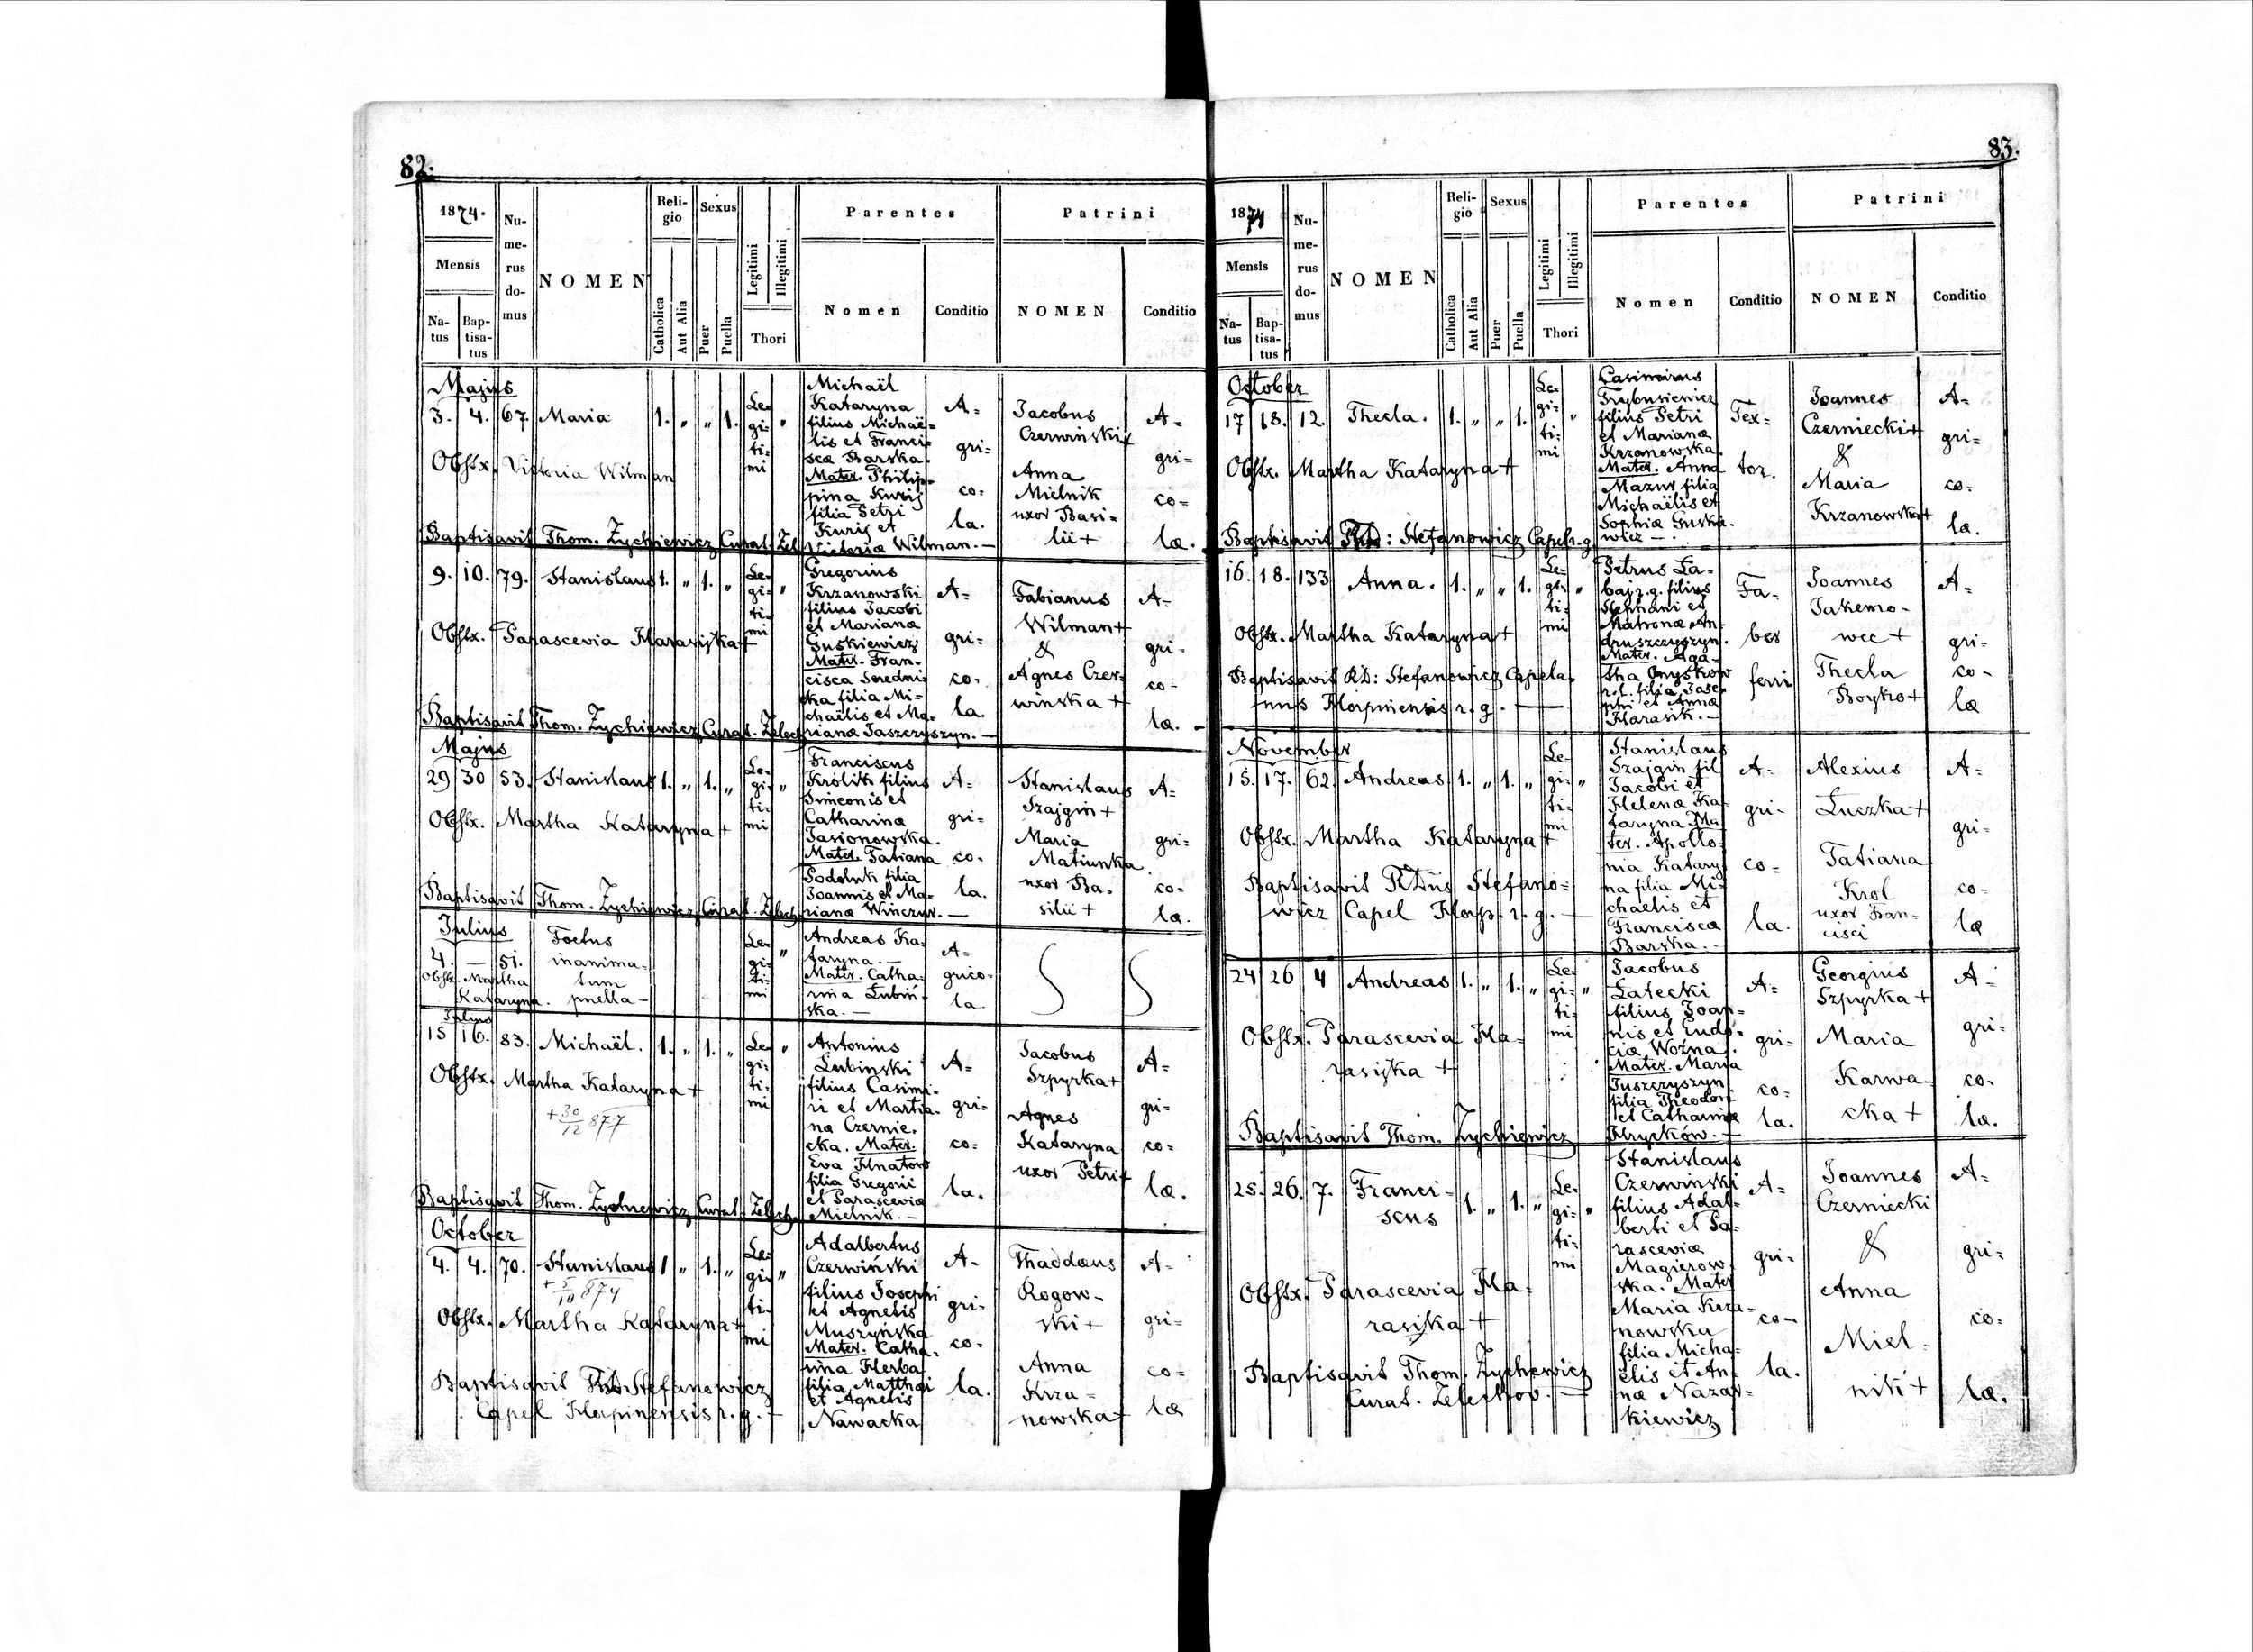 82.
1874.
Mensis
Natus
Baptisatus
Numerus domus
NOMEN
Religio
Catholica
Aut Alia
Sexus
Puer
Puella
Legitimi
Illegitimi
Thori
Parentes
Nomen
Conditio
Patrini
NOMEN
Conditio
Majus
3. 4. 67. Maria 1. " " 1.
Le=
gi=
ti=
mi
"
Michaël
Kataryna
filius Michaë=
lis et Franci=
scæ Barska.
Mater. Philip=
pina Kurij
filia Petri
Kurij et
Victoriæ Wilman. —
A=
gri=
co=
la.
Jacobus
Czerwiński+
Anna
Mielnik
uxor Basi=
lii +
A=
gri=
co=
læ.
Obstx. Victoria Wilman
Baptisavit Thom. Zychiewicz Curat. Zel
9. 10. 79. Stanislaus 1. " 1. "
Le=
gi=
ti=
mi
"
Gregorius
Krzanowski
filius Jacobi
et Marianæ
Guskiewicz
Mater. Fran=
cisca Seredni=
cka filia Mi=
chaëlis et Ma=
rianæ Jaszczyszyn. —
A=
gri=
co=
la.
Fabianus
Wilman+
&
Agnes Czer=
winska +
A=
gri=
co=
læ.
Obstx. Parascevia Harasijka+
Baptisavit Thom. Zychiewicz Curat. Zelech
Majus
29 30 53. Stanislaus 1. " 1. "
Le=
gi=
ti=
mi
"
Franciscus
Królik filius
Simeonis et
Catharinæ
Jasionowska.
Mater. Tatiana
Podolnk filia
Joannis et Ma=
rianæ Winczur. —
A=
gri=
co=
la.
Stanislaus
Szajgin +
Maria
Matiunka
uxor Ba=
silii +
A=
gri=
co=
læ.
Obstx. Martha Kataryna +
Baptisavit Thom. Zychiewicz Curat. Zelech
Julius
4. — 51.
Foetus
inanima=
tum
puella —
Le=
gi=
ti=
mi
"
Andreas Ka=
taryna. —
Mater. Catha=
rina Łubiń=
ska. —
A=
grico=
la.
Obstx. Martha
Kataryna.
Julius
15 16. 83. Michaël. 1. " 1. "
Le=
gi=
ti=
mi
"
Antonius
Lubinski
filius Casimi=
ri et Maria=
næ Czernie=
cka. Mater.
Eva Hnatow
filia Gregorii
et Parasceviæ
Mielnik. —
A=
gri=
co=
la.
Jacobus
Szpyrka+
Agnes
Kataryna
uxor Petri+
A=
gri=
co=
læ.
Obstx. Martha Kataryna +
+ 30/12 877
Baptisavit Thom. Zychiewicz Curat. Zelech.
October
4. 4. 70. Stanislaus 1 " 1. "
+ 5/10 874
Le=
gi=
ti=
mi
"
Adalbertus
Czerwiński
filius Josephi
et Agnetis
Muszyńska
Mater. Catha=
rina Herba
filia Matthæi
et Agnetis
Nawacka
A=
gri=
co=
la.
Thaddæus
Rogow=
ski +
Anna
Krza=
nowska+
A=
gri=
co=
læ
Obstx. Martha Kataryna +
Baptisavit Stefanowicz
Capel Horpinensis r. g. +
83.
1874
Mensis
Natus
Baptisatus
Numerus domus
NOMEN
Religio
Catholica
Aut Alia
Sexus
Puer
Puella
Legitimi
Illegitimi
Thori
Parentes
Nomen
Conditio
Patrini
NOMEN
Conditio
October
17 18. 12. Thecla. 1. " " 1.
Le=
gi=
ti=
mi
"
Casimirus
Trybusiewicz
filius Petri
et Marianæ
Krzanowska.
Mater. Anna
Mazur filia
Michaëlis et
Sophiæ Guskie=
wicz —.
Tex=
tor.
Joannes
Czerniecki+
&
Maria
Krzanowska+
A=
gri=
co=
læ.
Obstx. Martha Kataryna +
Baptisavit RD: Stefanowicz Capel r. g
16. 18. 133 Anna. 1. " " 1.
Le=
gi=
ti=
mi
"
Petrus Ła=
baj r. g. filius
Stephani et
Matronæ An=
druszczyszyn.
Mater. Aga=
tha Onyśkow
r. l. filia Jose=
phi et Annæ
Harasik. —
Fa=
ber
ferri
Joannes
Jakemo=
wec +
Thecla
Boyko+
A=
gri=
co=
læ
Obstx. Martha Kataryna +
Baptisavit RD: Stefanowicz Capela=
nus Horpinensis r. g. —
November
15. 17. 62. Andreas 1. " 1. "
Le=
gi=
ti=
mi
"
Stanislaus
Szajgin fil
Jacobi et
Helenæ Ka=
taryna Ma=
ter. Apollo=
nia Katary=
na filia Mi=
chaelis et
Franciscæ
Barska. —
A=
gri=
co=
la.
Alexius
Łuczka+
Tatiana
Krol
uxor Fran=
cisci
A=
gri=
co=
læ
Obstx. Martha Kataryna +
Baptisavit RDnus Stefano=
wicz Capel Horp. r. g. —
24 26 4 Andreas 1. " 1. "
Le=
gi=
ti=
mi
"
Jacobus
Łatecki
filius Joan=
nis et Eudo=
ciæ Woźna.
Mater. Maria
Juszczyszyn
filia Theodori
et Catharinæ
Hryćków. —
A=
gri=
co=
la.
Georgius
Szpyrka +
Maria
Karwa=
cka +
A=
gri=
co=
læ.
Obstx. Parascevia Ha=
rasijka +
Baptisavit Thom. Zychiewicz
25. 26. 7. Franci=
scus
1. " 1. "
Le=
gi=
ti=
mi
"
Stanislaus
Czerwiński
filius Adal=
berti et Pa=
rasceviæ
Magierow=
ska. Mater
Maria Krza=
nowska
filia Micha=
ëlis et An=
næ Nazar=
kiewicz
A=
gri=
co=
la.
Joannes
Czerniecki
&
Anna
Miel=
nik +
A=
gri=
co=
læ.
Obstx. Parascevia Ha=
rasijka +
Baptisavit Thom. Zychiewicz
Curat. Zelechov. —